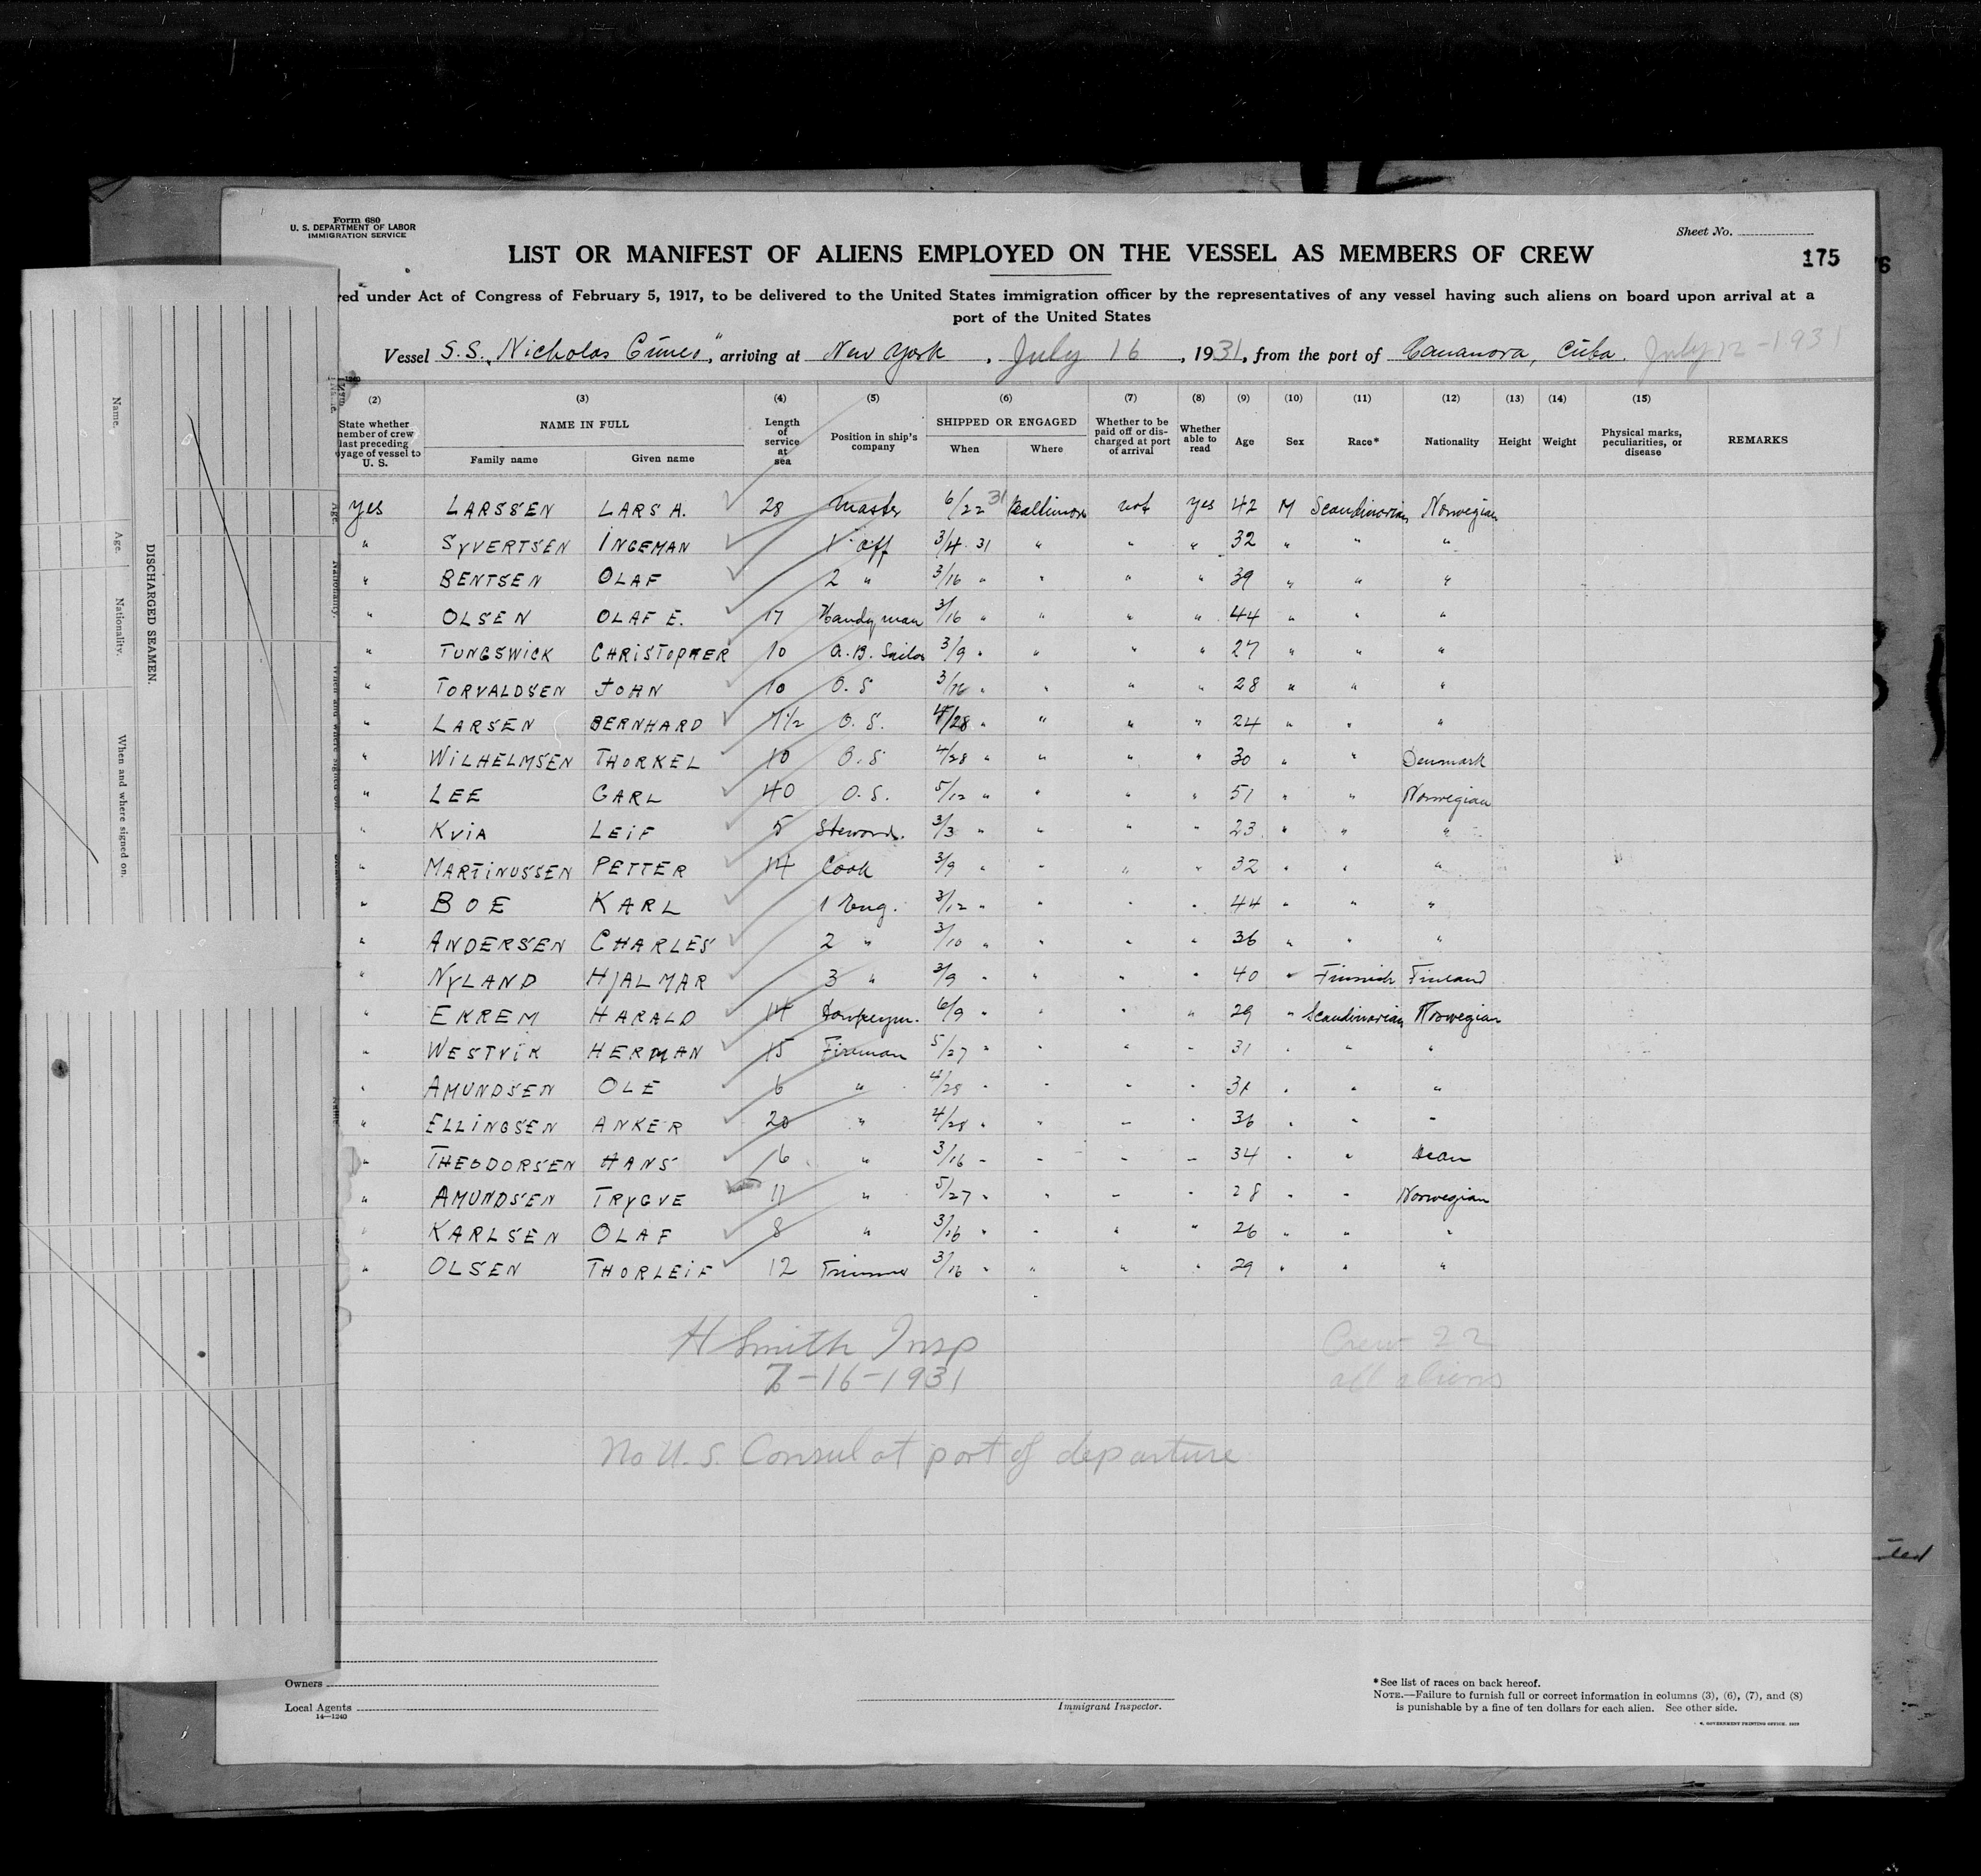 Form 680
U. S. DEPARTMENT OF LABOR
IMMIGRATION SERVICE
Sheet No.
LIST OR MANIFEST OF ALIENS EMPLOYED ON THE VESSEL AS MEMBERS OF CREW
175
red under Act of Congress of February 5, 1917, to be delivered to the United States immigration officer by the representatives of any vessel having such aliens on board upon arrival at a
port of the United States
Vessel S.S. "Nicholas Cuneo", arriving at New York, July 16, 1931, from the port of Cananova, Cuba. July 12-1931
(2) (3) (4) (5) (6) (7) (8) (9) (10) (11) (12) (13) (14) (15)
State whether member of crew last preceding oyage of vessel to U. S. NAME IN FULL Family name Given name Length of service at sea Position in ship's company SHIPPED OR ENGAGED When Where Whether to be paid off or discharged at port of arrival Whether able to read Age Sex Race* Nationality Height Weight Physical marks, peculiarities, or disease REMARKS
Yes LARSSEN LARS A. 28 Master 6/22 31 Baltimore not yes 42 M Scandinavian Norwegian
" SYVERTSEN INGEMAN 1 off 3/4 31 " " " 32 " " "
" BENTSEN OLAF 2 " 3/16 " " " " 39 " " "
" OLSEN OLAF E. 17 Handyman 3/16 " " " " 44 " " "
" TUNGSWICK CHRISTOPHER 10 A.B. Sailor 3/9 " " " " 27 " " "
" TORVALDSEN JOHN 10 O. S 3/16 " " " " 28 " " "
" LARSEN BERNHARD 7 1/2 O. S. 4/28 " " " " 24 " " "
" WILHELMSEN THORKEL 10 O. S 4/28 " " " " 30 " " Denmark
" LEE CARL 40 O. S. 5/12 " " " " 51 " " Norwegian
" KVIA LEIF 5 Steward. 3/3 " " " " 23 " " "
" MARTINUSSEN PETTER 14 Cook 3/9 " " " " 32 " " "
" BOE KARL 1 Eng. 3/12 " " " " 44 " " "
" ANDERSEN CHARLES 2 " 3/10 " " " " 36 " " "
" NYLAND HJALMAR 3 " 3/9 " " " " 40 " Finnish Finland
" EKREM HARALD 14 Donkeym. 6/9 " " " " 29 " Scandinavian Norwegian
" WESTVIK HERMAN 15 Fireman 5/27 " " " " 31 " " "
" AMUNDSEN OLE 6 " 4/28 " " " " 31 " " "
" ELLINGSEN ANKER 20 " 4/28 " " " " 36 " " "
" THEODORSEN HANS 16 " 3/16 " " " " 34 " "
" AMUNDSEN TRYGVE 11 " 5/27 " " " " 28 " " Norwegian
" KARLSEN OLAF 8 " 3/16 " " " " 26 " " "
" OLSEN THORLEIF 12 Trimmer 3/16 " " " " 29 " " "
H Smith Insp
7-16-1931
Crew 22
all aliens
No U.S. Consul at port of departure
Owners
Local Agents
14—1240
Immigrant Inspector.
*See list of races on back hereof.
NOTE.—Failure to furnish full or correct information in columns (3), (6), (7), and (8)
is punishable by a fine of ten dollars for each alien. See other side.
GOVERNMENT PRINTING OFFICE
DISCHARGED SEAMEN.
Name. Age. Nationality. When and where signed on.